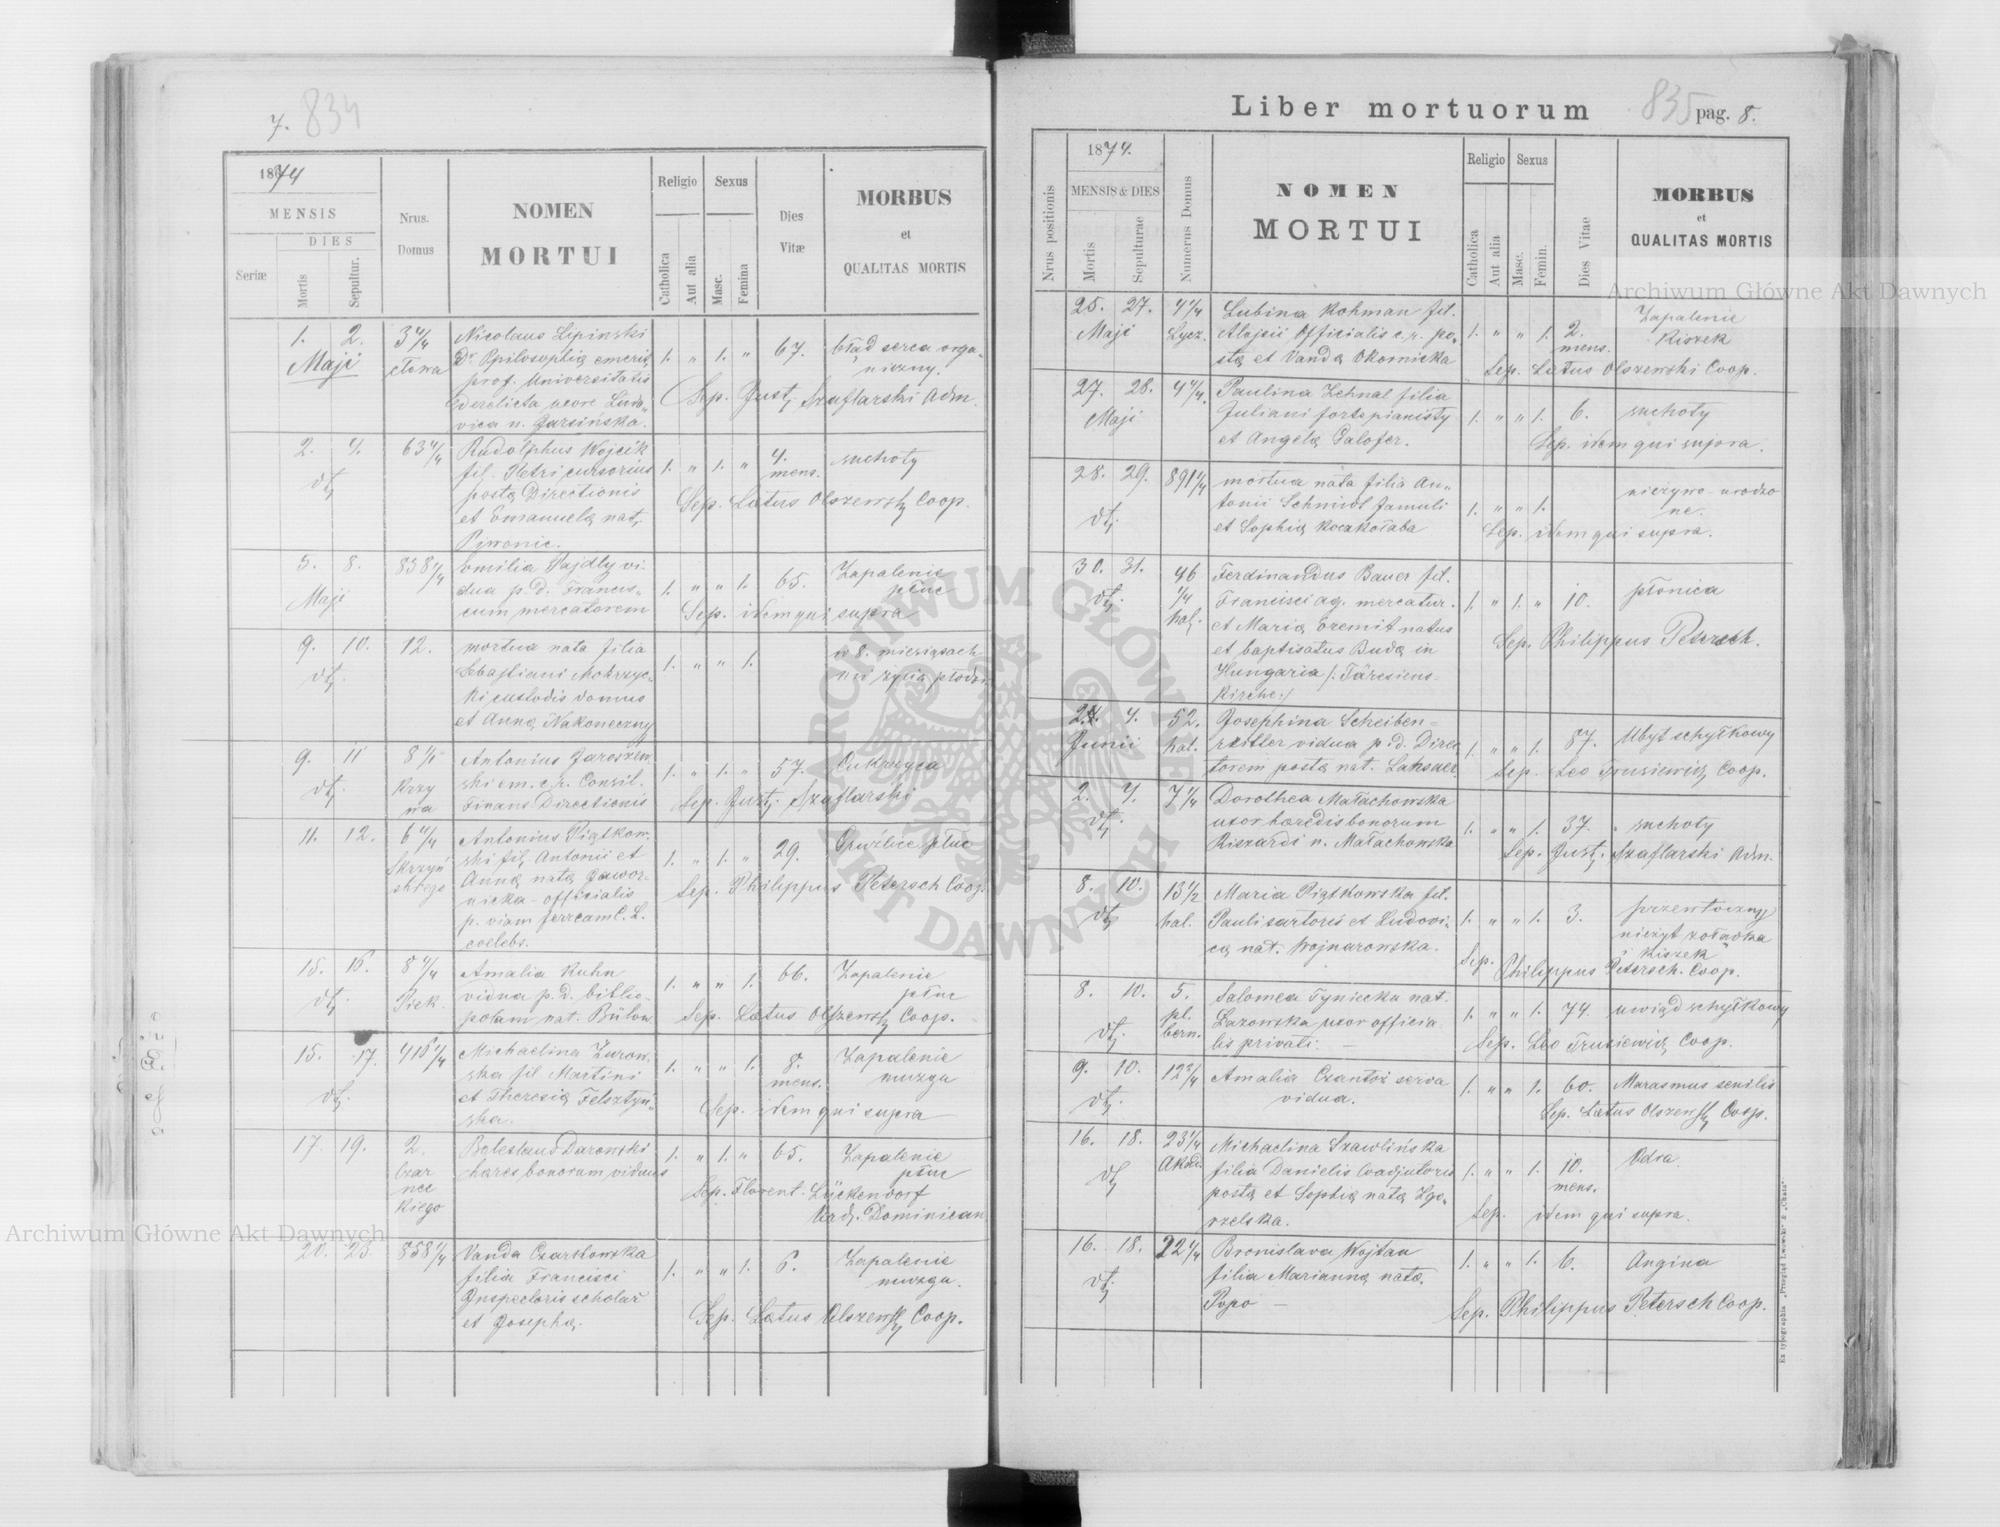 7. 834
1874
MENSIS
DIES
Seriæ
Mortis
Sepultur.
Nrus.
Domus
NOMEN
MORTUI
Religio
Catholica
Aut alia
Sexus
Masc.
Femina
Dies
Vitæ
MORBUS
et
QUALITAS MORTIS
1. 2. 3 4/4
Maji
Nicolaus Lipinski
Dr. Philosophiæ emerit.
prof. Universitatis
derelicta uxore Ludo-
vica n.
1. " 1. " 67.
błąd serca orga-
niczny.
Sep. Just. Szaflarski Adm.
2. 4. 63 4/4
dt.
Rudolphus Wojcik
fil. Petri cursorius
postæ Directionis
et Emanuelæ nat.
Piwonic.
1. " 1. " 4.
mens.
suchoty
Sep. Lætus Olszewsk Coop.
5. 8. 838 4/4
Maji
Emilia Pajdly vi-
dua p. d. Francis-
cum mercatorem
1. " " 1. 65.
Zapalenie
płuc
Sep. idem qui supra
9. 10. 12.
dt.
mortua nata filia
Sebastiani Mokrzyc-
ki custodis domus
et Annæ Nakoneczny
1. " " 1.
w 8. miesiącach
9. 11
dt.
Krzy
wa
Antonius
ski em. c. r. Consil.
Finans Directionis
1. " 1. " 57.
Cukrzyca
Sep. Just. Szaflarski
11. 12. 6 4/4
Skrzyń
skiego
Antonius Piątkow-
ski fil. Antonii et
Annæ nata Jawor-
nicka - officialis
p. viam ferream C. L.
coelebs.
1. " 1. " 29.
Gruźlice płuc
Sep. Philippus Petersch Coop.
15. 16. 8 4/4
dt.
Piek.
Amalia Kuhn
vidua p. d. biblio-
polam nat. Bülow
1. " " 1. 66.
Zapalenie
płuc
Sep. Lætus Olszewsk Coop.
15. 17. 416 4/4
dt.
Michaelina Zurow-
ska fil Martini
et Theresiæ Felsztyń-
ska.
1. " " 1. 8.
mens.
Zapalenie
muzga
Sep. idem qui supra
17. 19. 2.
Czar
nec
kiego
Boleslaus Darowski
hæres bonorum viduus
1. " 1. " 65.
Zapalenie
płuc
Sep. Florent. Lückendorf
Dominican
20. 23. 858 4/4
Vanda Czarkowska
filia Francisci
Inspectoris scholar
et Josephæ.
1. " " 1. 6.
Zapalenie
muzga.
Sep. Lætus Olszewsk Coop.
Liber mortuorum
835 pag. 8.
Nrus positionis
1874.
MENSIS & DIES
Mortis
Sepulturae
Numerus Domus
NOMEN
MORTUI
Religio
Catholica
Aut alia
Sexus
Masc.
Femin.
Dies Vitae
MORBUS
et
QUALITAS MORTIS
25. 27. 4 4/4
Maji Lycz.
Lubina Kohman fil.
Alojsii Officialis c. r. po-
stæ et Vandæ Okornicka
1. " " 1. 2.
mens.
Zapalenie
Kiszek
Sep. Lætus Olszewski Coop.
27. 28. 4 4/4.
Maji
Paulina Zehnal filia
Juliani fortepianisty
et Angelæ Dalofer.
1. " " 1. 6.
suchoty
Sep. idem qui supra.
28. 29. 891 4/4
dt.
mortua nata filia An-
tonii Schmidl famuli
et Sophiæ Koczkotaba
1. " " 1.
nieżywo urodzo
ne.
Sep. idem qui supra.
30. 31. 46
4/4
hal.
dt.
Ferdinandus Bauer fil.
Francisci ag. mercatur.
et Mariæ Eremit natus
et baptisatus Budæ in
Hungaria /: Täresiens-
Kirche:/
1. " 1. " 10.
płonica
Sep. Philippus Petersch.
2. 4. 52.
Junii hal.
Josephina Scheiben-
reitler vidua p. d. Direc-
torem postæ nat. Laksner
1. " " 1. 87.
Ubyt schyłkowy
Sep. Leo Trusiewicz Coop.
2. 4. 7 1/4
dt.
Dorothea Małachowska
uxor hæredis bonorum
Riszardi n. Małachowska
1. " " 1. 37.
suchoty
Sep. Just. Szaflarski Adm.
8. 10. 13 1/2
dt. hal.
Maria Piątkowska fil.
Pauli sartoris et Ludovi-
cæ nat. Wojnarowska.
1. " " 1. 3.
nieżyt żołądka
Kiszek
Sep. Philippus Petersch. Coop.
8. 10. 5.
dt. pl.
bern.
Salomea Tyniecka nat.
Lazowska uxor officia-
lis privati. -
1. " " 1. 74.
uwiąd schyłkowy
Sep. Leo Trusiewicz Coop.
9. 10. 12 2/4
dt.
Amalia Czantoś serva
vidua.
1. " " 1. 60.
Marasmus senilis
Sep. Lætus Olszewsk Coop.
16. 18. 23 1/4
dt. Akad.
Michaelina Szawlińska
filia Danielis Coadjutoris
postæ et Sophiæ nata Zgo-
rzelska.
1. " " 1. 10.
mens.
Odra
Sep. idem qui supra.
16. 18. 22 1/4
dt.
Bronislava Wojtau
filia Mariannæ nata.
Popo -
1. " " 1. 6.
Angina
Sep. Philippus Petersch Coop.
Ex typographia „Przegląd Lwowski" & „Chata"
Archiwum Główne Akt Dawnych
Archiwum Główne Akt Dawnych
ARCHIWUM GŁÓWNE
AKT DAWNYCH